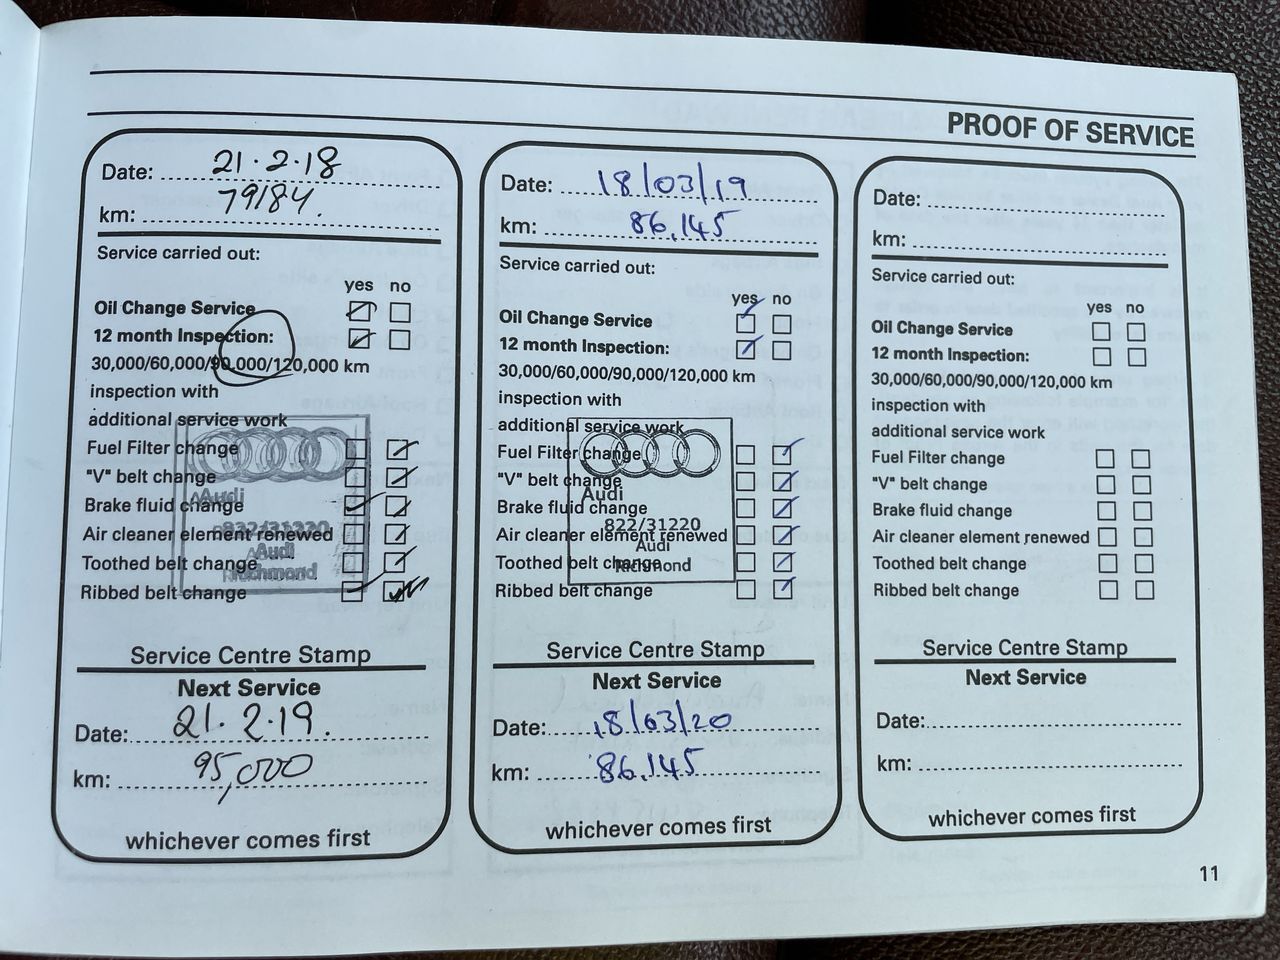 PROOF OF SERVICE
Date: 21.2.18
km: 79184.
Service carried out:
yes no
Oil Change Service
12 month Inspection:
30,000/60,000/90,000/120,000 km
inspection with
additional service work
Fuel Filter change
"V" belt change
Brake fluid change
Air cleaner element renewed
Toothed belt change
Ribbed belt change
Audi
822/31220
Audi
Richmond
Service Centre Stamp
Next Service
Date: 21.2.19.
km: 95,000
whichever comes first
Date: 18/03/19
km: 86,145
Service carried out:
yes no
Oil Change Service
12 month Inspection:
30,000/60,000/90,000/120,000 km
inspection with
additional service work
Fuel Filter change
"V" belt change
Brake fluid change
Air cleaner element renewed
Toothed belt change
Ribbed belt change
Audi
822/31220
Audi
Richmond
Service Centre Stamp
Next Service
Date: 18/03/20
km: 86,145
whichever comes first
Date:
km:
Service carried out:
yes no
Oil Change Service
12 month Inspection:
30,000/60,000/90,000/120,000 km
inspection with
additional service work
Fuel Filter change
"V" belt change
Brake fluid change
Air cleaner element renewed
Toothed belt change
Ribbed belt change
Service Centre Stamp
Next Service
Date:
km:
whichever comes first
11